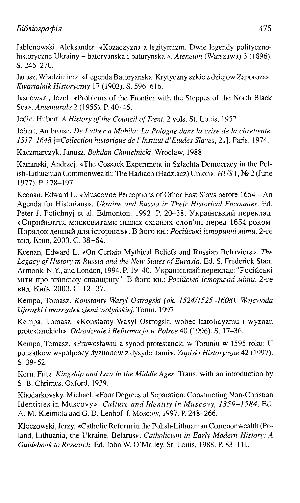 Бібліографія 475
Jabłonowski, Aleksander. «Kozaczyzna a legitymizm. Dwie legendy polityczno-
historyczne Ukrainy – baturyńska i baturyńska». Ateneum (Warszawa) 3 (1896).
S. 245-270.
Kwartalnik Historyczny 17 (1902). S. 596-616.
«Problems of the Frontier with the Steppes of the North Black
Sea». Antemurale 2 (1955). P. 40-45.
Jedin, Hubert. A History of the Council of Trent. 2 vols. St. Louis, 1957
Jobert, Ambroise. De Luther à Mohila: La Pologne dans la crise de la chrétienté,
1517-1648 [=Collection historique de l'Institut d'Études Slaves, 21]. Paris, 1974.
Kaczmarczyk, Janusz. Bohdan Chmielnicki. Wrocław, 1988
Kaminski, Andrzej. «The Cossack Experiment in Szlachta Democracy in the Pol-
ish-Lithuanian Commonwealth: The Hadiach (Hadziacz) Union». HUS 1, № 2 (June
1977). P. 178-197
Keenan, Edward L. «Muscovite Perceptions of Other East Slavs before 1654 – An
Agenda for Historians». Ukraine and Russia in Their Historical Encounter. Ed.
Peter J. Potichnyj et al. Edmonton, 1992. P. 20-38. Український переклад:
«Сприйняття московитами інших східних слов'ян перед 1654 роком:
Порядок денний для істориків». В його кн.: Російські історичні міти. 2-ге
вид. Київ, 2003. С. 38-64.
Keenan, Edward L. «On Certain Mythical Beliefs and Russian Behaviors». The
Legacy of History in Russia and the New States of Eurasia. Ed. S. Frederick Starr.
Armonk, N.Y., and London, 1994. P. 19-40. Український переклад: "Російські
міти про київську спадщину." В його кн.: Російські історичні міти. 2-ге
вид. Київ, 2003. С. 12-37.
Kempa, Tomasz. Konstanty Wasyl Ostrogski (ok. 1524/1525-1608). Wojewoda
kijowski i marszałek ziemi wołyńskiej. Toruń, 1997
Kempa, Tomasz. «Konstanty Wasyl Ostrogski wobec katolicyzmu i wyznań
protestanckich». Odrodzenie i Reformacja w Polsce 40 (1996). S. 17-36.
Kempa, Tomasz. «Prawosławni a synod protestancki w Toruniu w 1595 roku: U
początków współpracy dyzunitów z dysydentami». Zapiski Historyczne 42 (1997).
S. 39-52.
Kern, Fritz. Kingship and Law in the Middle Ages. Trans. with an introduction by
S. B. Chrimes. Oxford, 1939.
Khodarkovsky, Michael. «Four Degrees of Separation: Constructing Non-Christian
Identities in Muscovy». Culture and Identity in Muscovy, 1359-1584. Ed.
A. M. Kleimola and G. D. Lenhoff. Moscow, 1997. P. 248-266.
Kłoczowski, Jerzy. «Catholic Reform in the Polish-Lithuanian Commonwealth (Po-
land, Lithuania, the Ukraine, Belarus)». Catholicism in Early Modern History: A
Guide to Research. Ed. John W. O'Malley. St. Louis, 1988. P. 83-111.